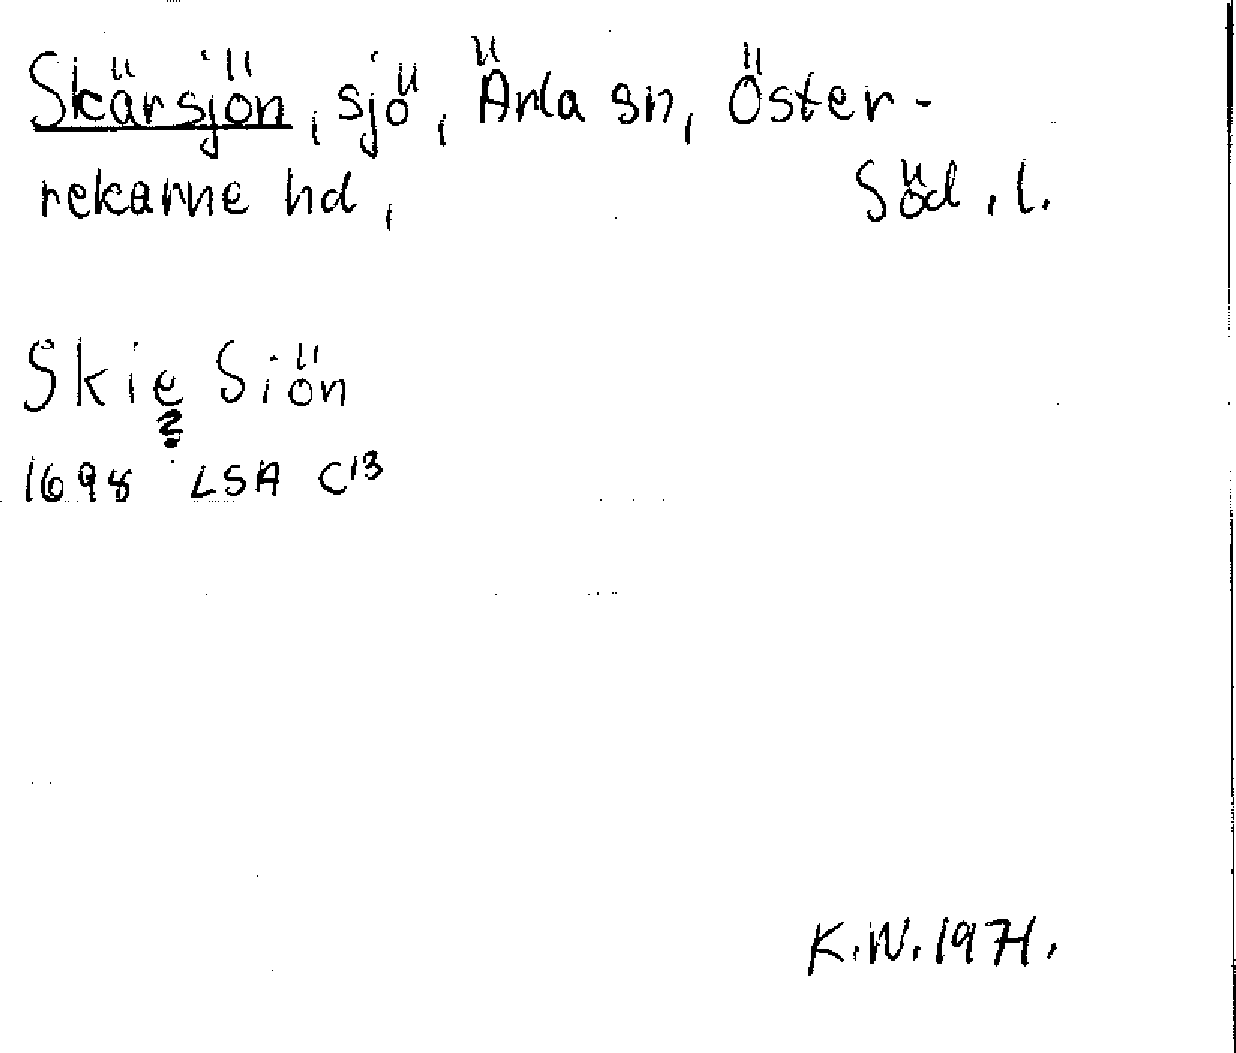 Skärsjön, sjö, Ärla sn, Öster-
rekarne hd, Söd. l.
Skie Siön
?
1698 LSA C13
K.W. 1971.